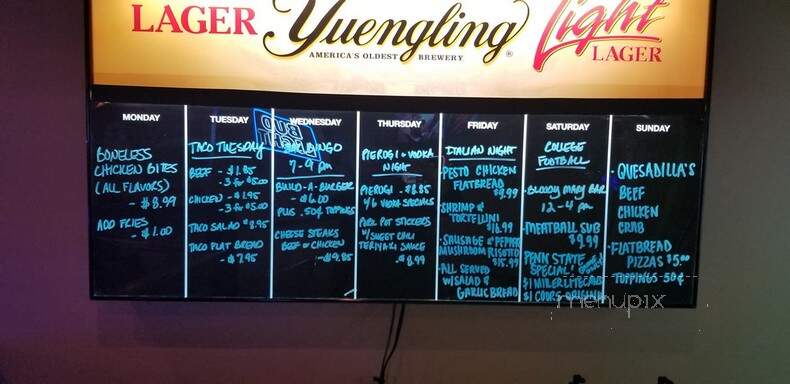 LAGER
Yuengling
Light
LAGER
AMERICA'S OLDEST BREWERY
MONDAY
BONELESS
CHICKEN BITES
(ALL FLAVORS)
- $8.99
ADD FRIES
- $1.00
TUESDAY
TACO TUESDAY
BEEF - $1.85
- 3 for $5.00
CHICKEN - $1.95
- 3 for $5.00
TACO SALAD - $8.95
TACO FLAT BREAD
- $7.95
WEDNESDAY
BINGO
7-9 pm
BUILD-A-BURGER
- $6.00
PLUS .50¢ TOPPINGS
CHEESE STEAKS
BEEF or CHICKEN
- $9.85
BUD
LIGHT
THURSDAY
PIEROGI & VODKA
NIGHT
PIEROGI - $8.85
VODKA SPECIALS
PORK POT STICKERS
W/SWEET CHILI
TERIYAKI SAUCE
- $8.99
FRIDAY
ITALIAN NIGHT
-PESTO CHICKEN
FLATBREAD
$9.99
-SHRIMP &
TORTELLINI
$16.99
-SAUSAGE & PEPPER
MUSHROOM RISOTTO
$15.99
-ALL SERVED
W/SALAD &
GARLIC BREAD
SATURDAY
COLLEGE
FOOTBALL
-BLOODY MARY BAR
12-4 pm
-MEATBALL SUB
$9.99
PENN STATE
SPECIAL
$1 MILLER LITE CANS
$1 COORS ORIGINAL
SUNDAY
-QUESADILLA'S
BEEF
CHICKEN
CRAB
-FLATBREAD
PIZZAS $5.00
TOPPINGS -50¢
menupix